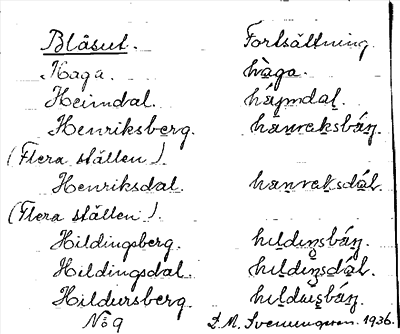 Blåsut. Fortsättning.
Haga. hàga.
Heimdal. háymdal.
Henriksberg. hænreksbáry.
(Flera ställen).
Henriksdal. hænreksdál.
(Flera ställen).
Hildingsberg. hıldiŋsbáry.
Hildingsdal. hıldiŋsdál.
Hildursberg. hıldursbáry.
No 9 D. M. Svenungsson. 1936.